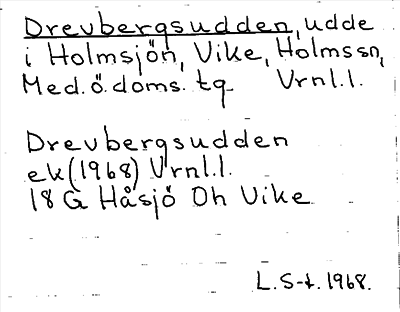 Drevbergsudden, udde
i Holmsjön, Vike, Holms sn,
Med.ö.doms. tg. Vrnl.l.
Drevbergsudden
ek(1968) Vrnl.l.
18 G Håsjö 0h Vike
L.S-t. 1968.